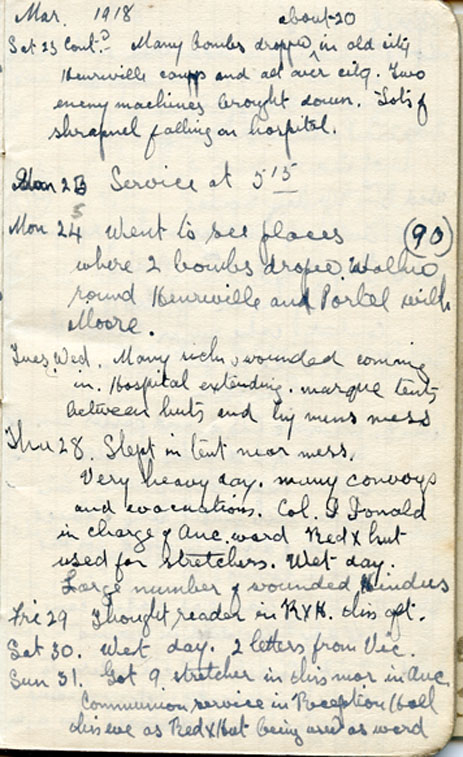 Mar. 1918 about 20
Sat 23 Cont.d Many bombs dropped in old city
Henriville camps and all over city. Two
enemy machines brought down. Lots of
shrapnel falling on hospital.
Service at 5 15
Mon 25 Went to see places (90)
where 2 bombs droped. Walked
round Henriville and Portel with
Moore.
Tues, Wed. Many sick & wounded coming
in. Hospital extending. marque tents
between huts and by mens mess
Thu 28. Slept in tent near mess.
Very heavy day. many convoys
and evacuations. Col. Donald
in charge of Anc. ward Red X hut
used for stretchers. Wet day.
Large number of wounded Hindus
Fri 29 Thought reader in R X H. this aft.
Sat 30. Wet day. 2 letters from Vic.
Sun 31. Got 9 stretcher in this mor in Anc.
Communion service in Reception Hall
this eve as Red X Hut being used as ward